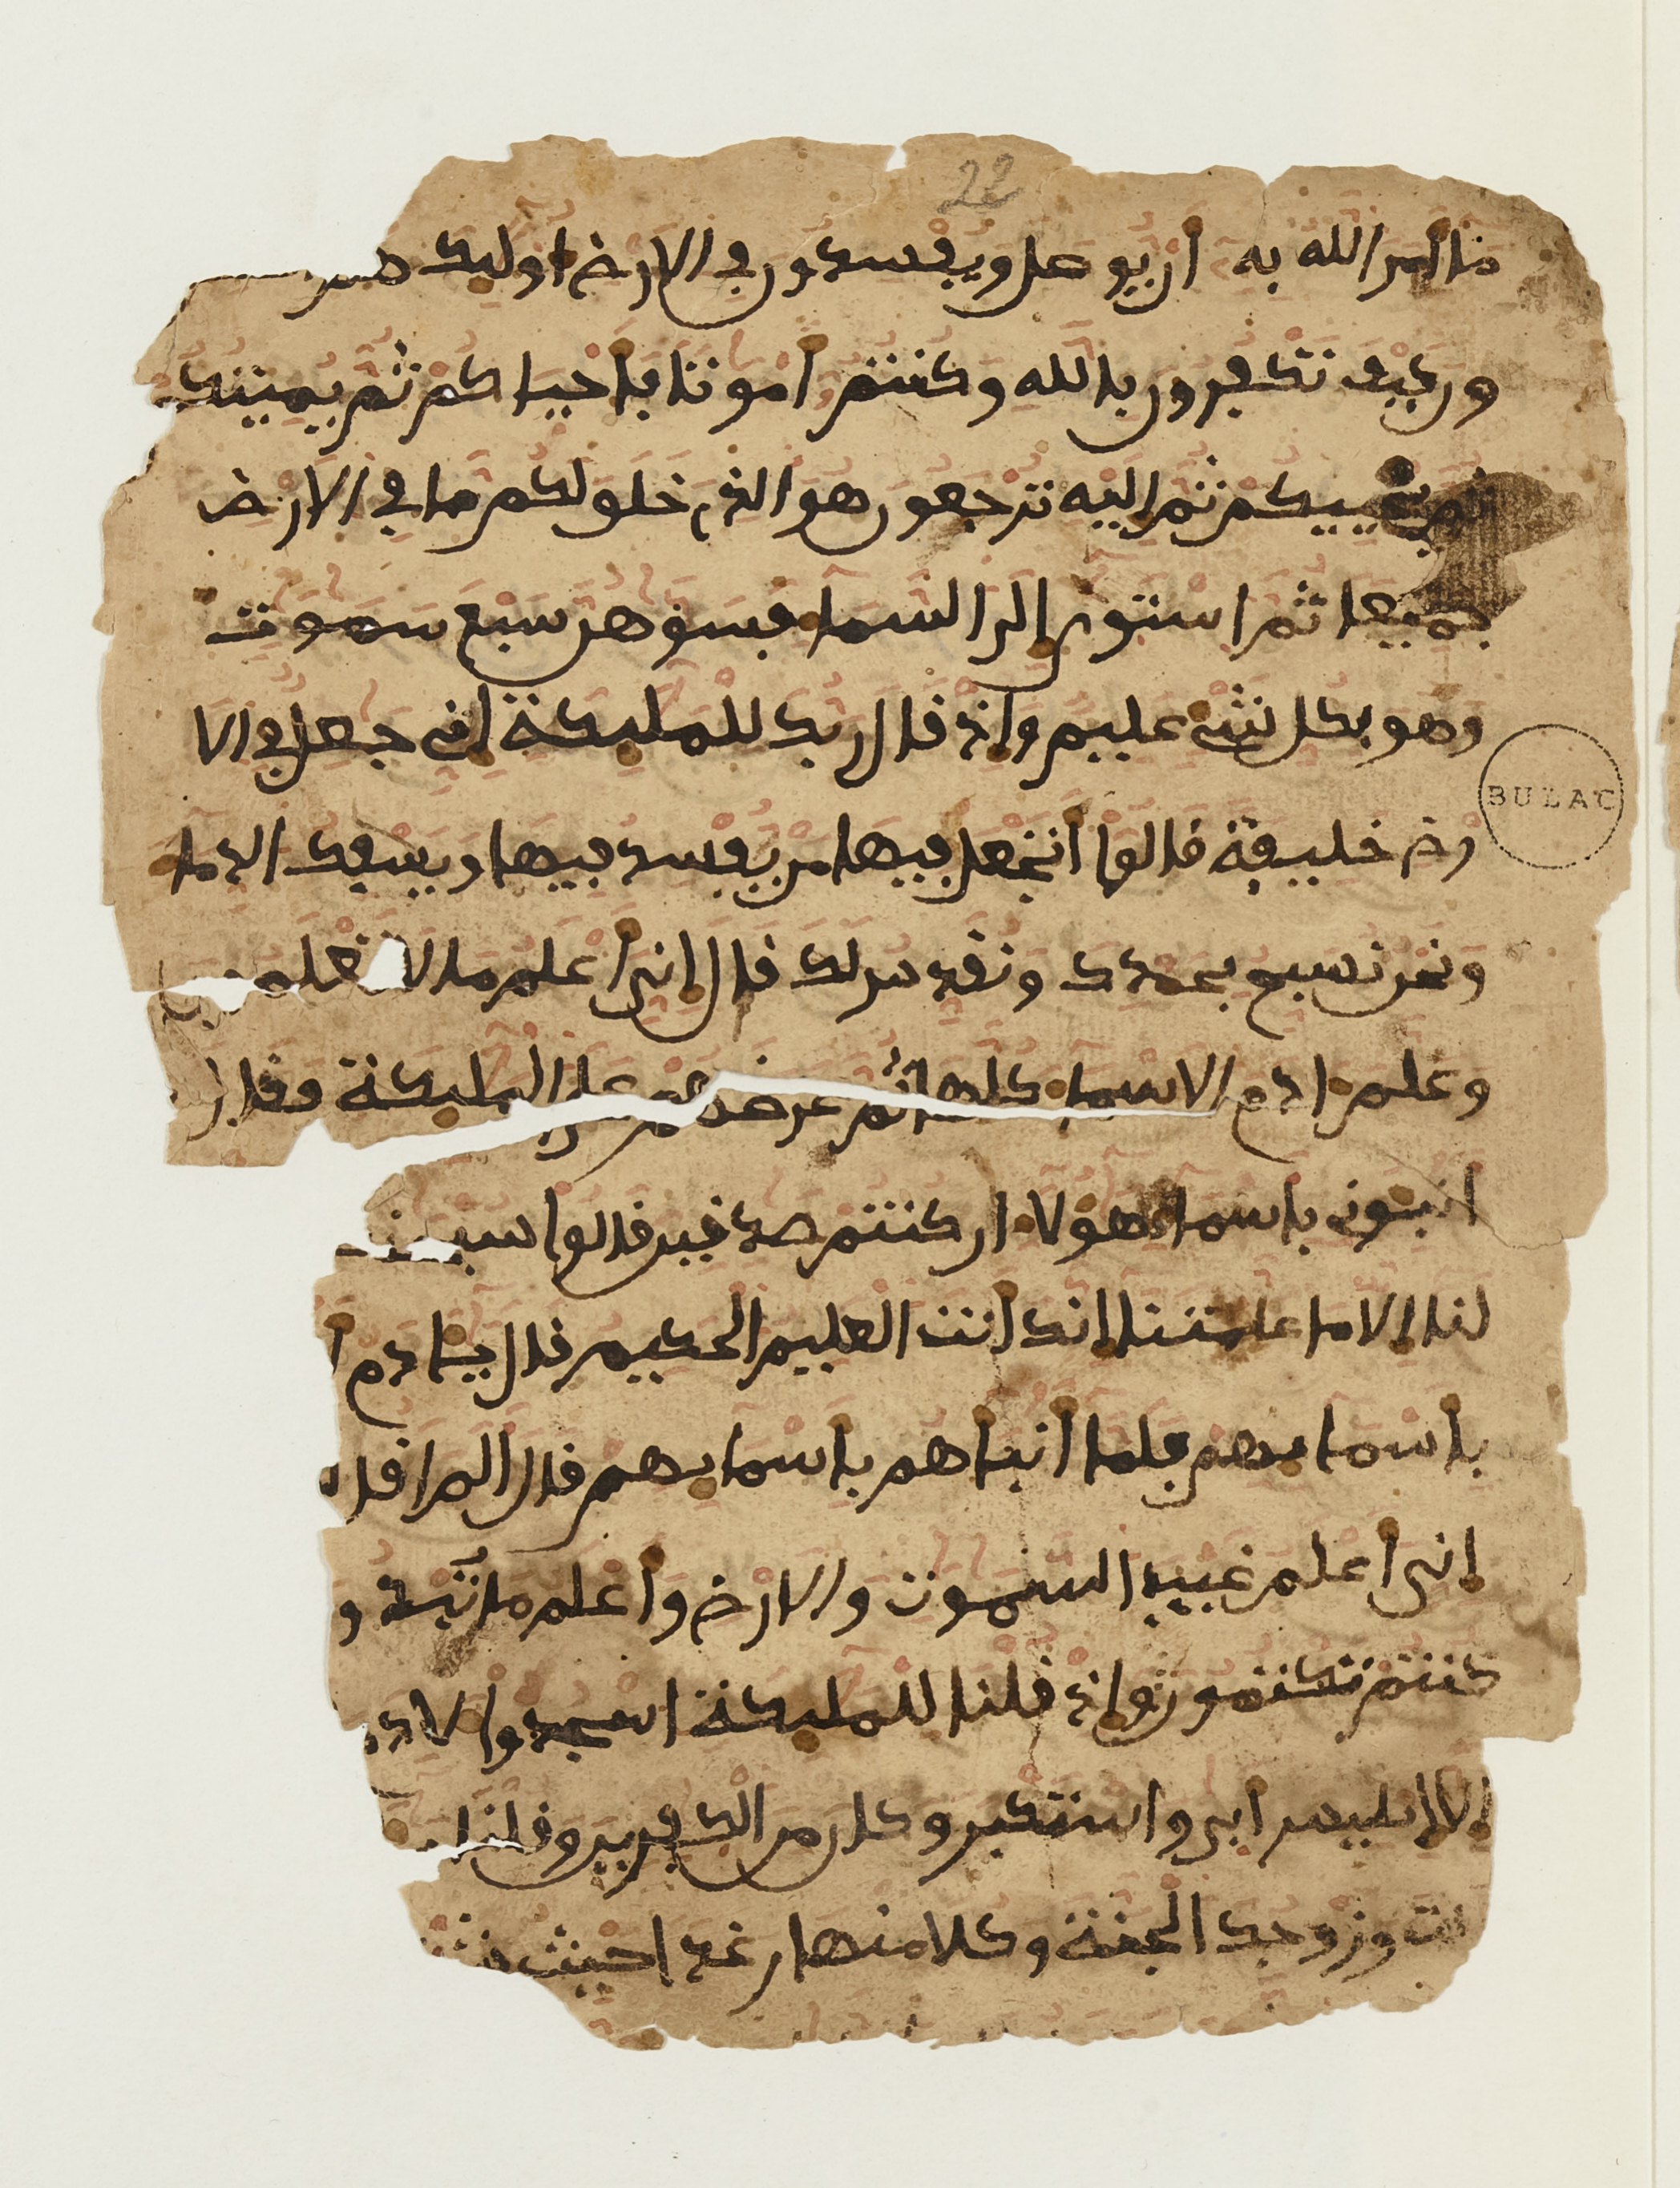 22
ما امر الله به أن يوصل ويفسدون في الارض اوليك هم
ون كيف تكفرون بالله وكنتم أموتا فأحياكم ثم يميتك
ثم يحييكم ثم اليه ترجعون هو الذي خلق لكم ما في الارض
جميعا ثم استوى إلى السما فسوهن سبع سموت
وهو بكل شي عليم وإذ قال ربك للمليكة إني جعل في الا
رض خليفة قالوا أتجعل فيها من يفسد فيها ويسفك الدما
ونحن نسبح بحمدك ونقدس لك قال إني أعلم ما لا تعلم
وعلم ادم الاسما كلها ثم عرضهم على المليكة وقال
انبوني بأسما هولا ان كنتم صدقين قالوا سبحن
لنا إلا ما علمتنا إنك أنت العليم الحكيم قال يادم أ
بأسمايهم فلما أنبأهم بأسمايهم قال الم اقل
إني أعلم غيب السموت والارض وأعلم ما تبد و
كنتم تكتمون وإذ قلنا للمليكة اسجدوا لاد
إلا إبليس أبى واستكبر وكان من الكفرين وقلنا
نت وزوجك الجنة وكلا منها رغدا حيث
BULAC